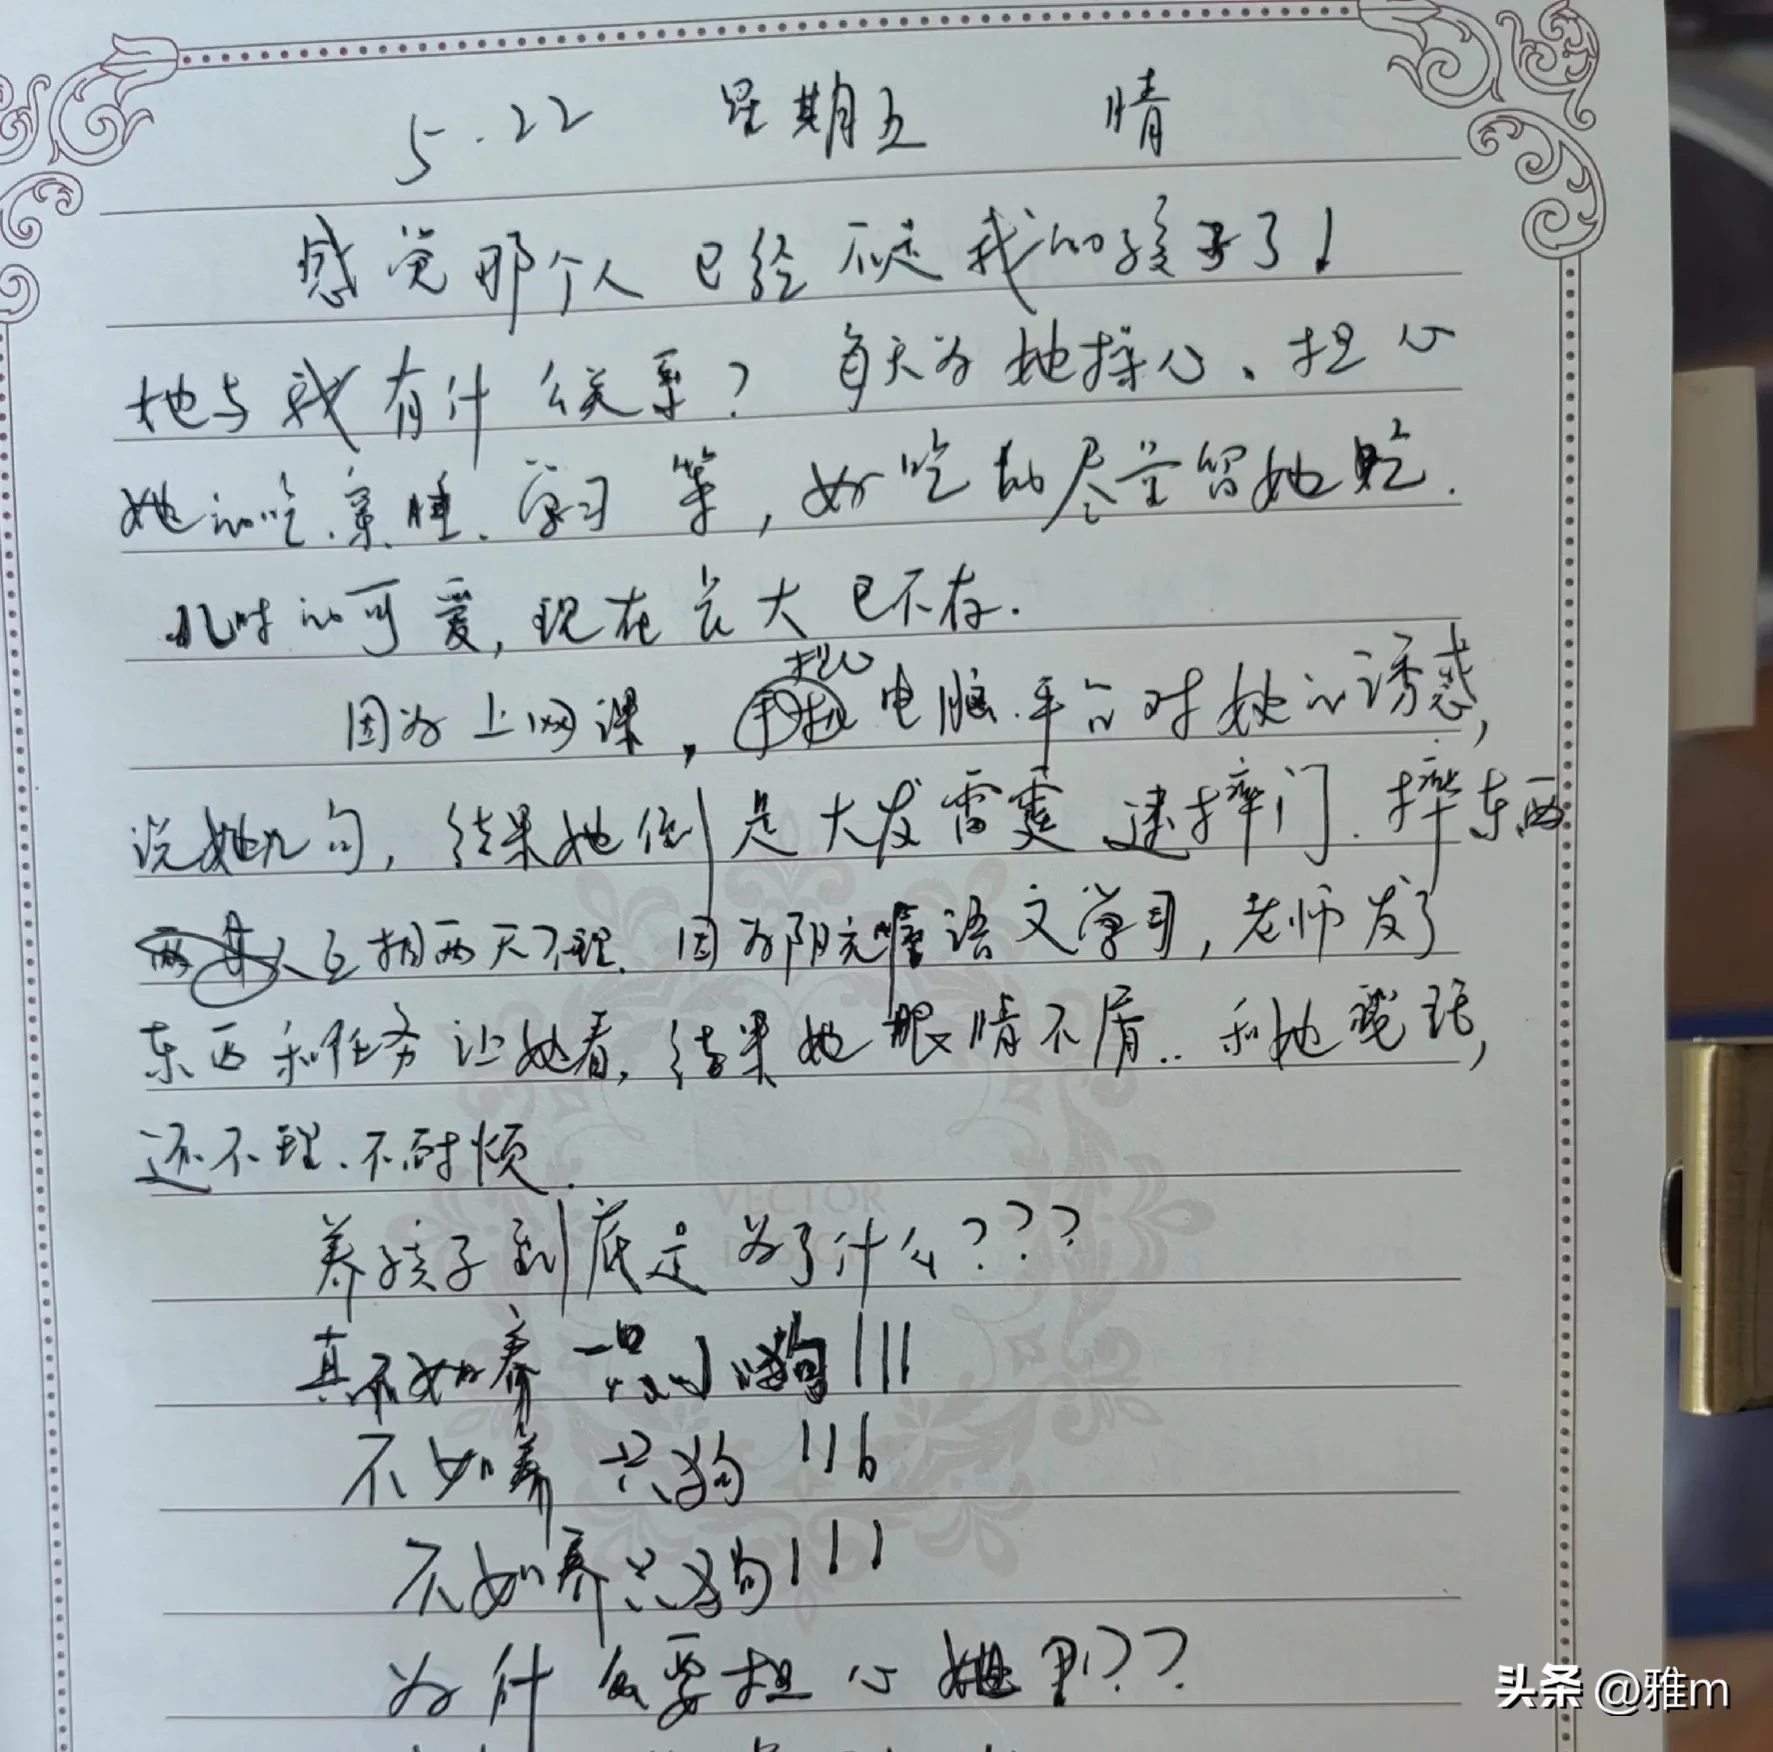 5.22 星期五 晴
感觉那个人已经不是我的孩子了!
她与我有什么关系? 每天为她操心、担心
她的吃、穿、睡、学习等, 好吃的尽量留她吃.
儿时的可爱, 现在长大已不存.
担心
因为上网课, 手机 电脑平台对她的诱惑,
说她几句, 结果她倒是大发雷霆 摔门. 摔东西
两 人互相两天不理. 因为 语文学习, 老师发了
东西和任务让她看, 结果她眼睛不屑.. 和她说话,
还不理、不耐烦.
养孩子到底是为了什么???
真不如养一只小狗!!!
不如养只狗!!!
不如养只狗!!!
为什么要担心她呢???
VECTOR
头条 @雅m